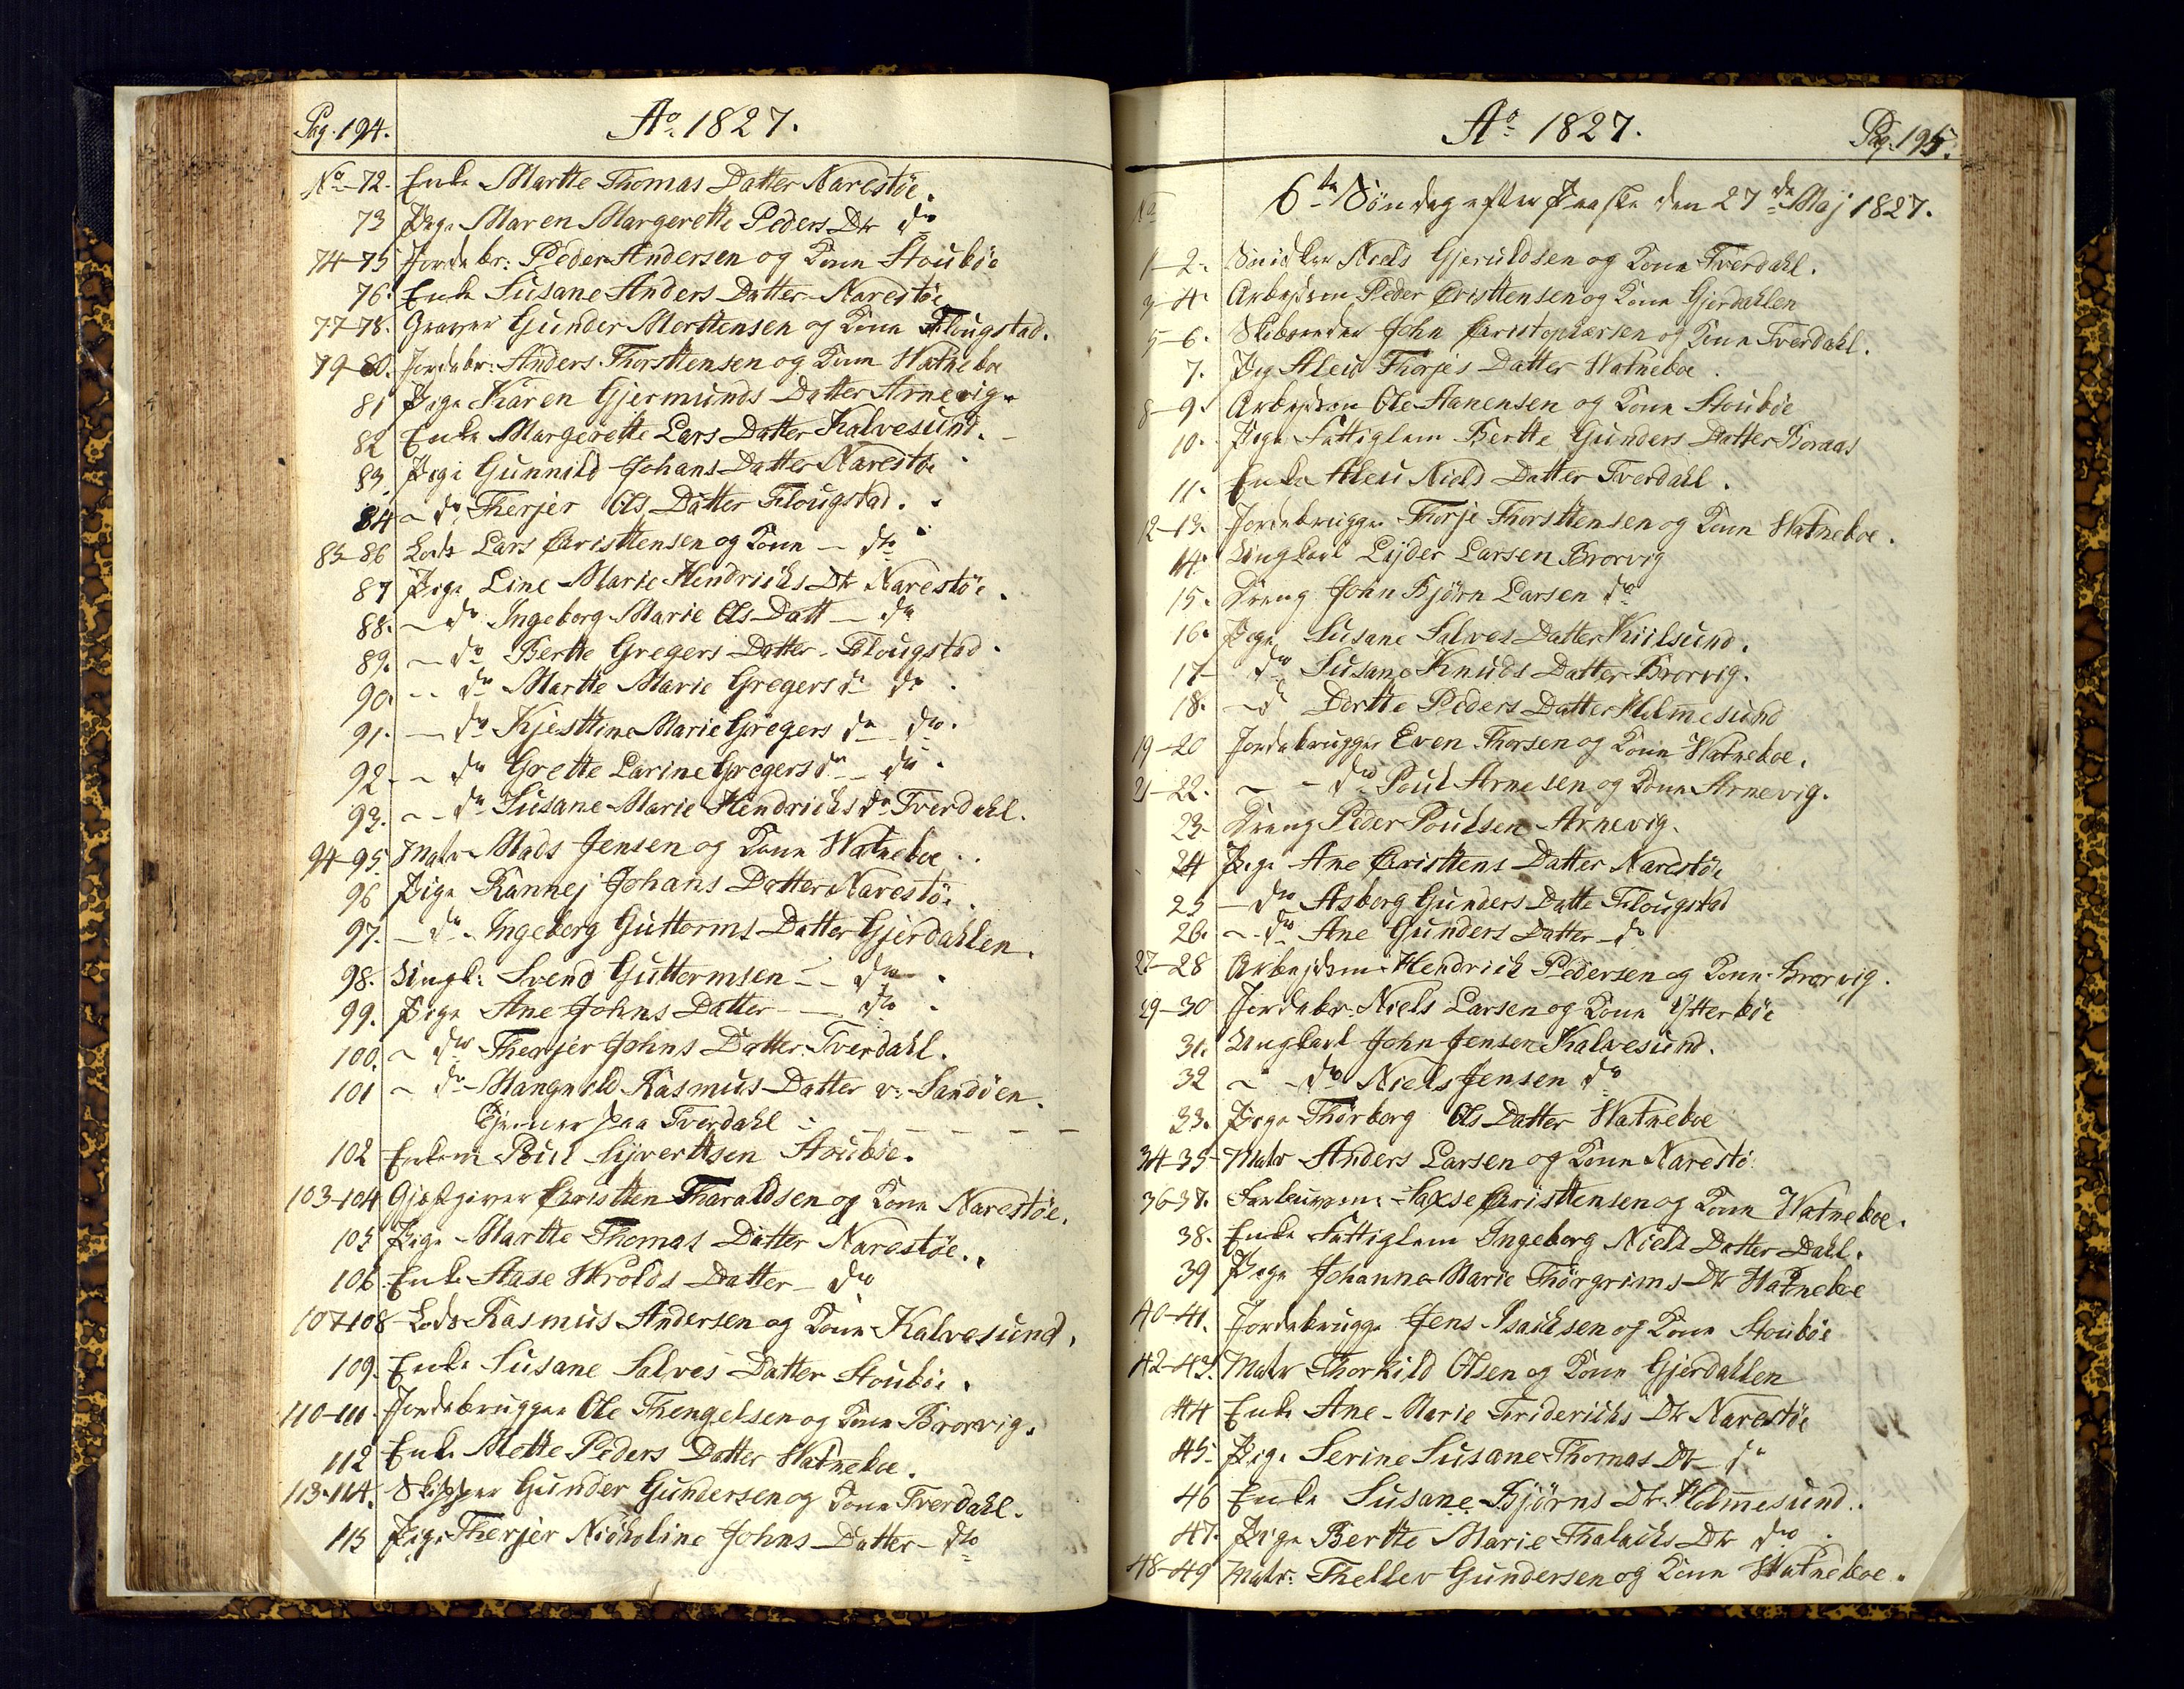 Pag. 194.
Ao 1827.
No 72. Enke Martte Thomas Datter Narestöe.
73 Pige Maren Margerette Peders Dtr do
74-75 Jordebr: Peder Andersen og Kone Stouböe
76. Enke Susane Anders Datter Narestöe
77-78. Graver Gunder Morttensen og Kone Flougstad.
79-80. Jordebr: Anders Thorsttensen og Kone Watneboe
81 Pige Karen Gjermunds Datter Arnevig.
82 Enke Margerette Lars Datter Kalvesund.
83. Pige Gunnild Johans Datter Narestöe
84 - do Therjer Ols Datter Flougstad.
85-86 Lods Lars Cristtensen og Kone - do
87 Pige Line Marie Hendrichs Dtr Narestöe.
88. - do Ingeborg Marie Ols Datt - do
89. - do Bertte Gregers Datter Flougstad.
90. - do Martte Marie Gregers do do
91. - do Kjesttine Marie Gregers do do.
92. - do Grette Larine Gregers do - do.
93. - do Susane Marie Hendrichs do Tverdahl.
94-95. Matr Mads Jensen og Kone Watneboe.
96 Pige Rannej Johans Datter Narestöe.
97. - do Ingeborg Guttorms Datter Gjerdahlen.
98. Ungk: Svend Guttormsen - - do
99. Pige Ane Johns Datter - do
100. - do Therjer Johns Datter Tverdahl.
101 - do Mangnild Rasmus Datter v: Sandöen.
Tjener paa Tverdahl
102 Enkem Poul Syverttsen Stouböe.
103-104 Gjestgiver Cristten Tharaldsen og Kone Narestöe.
105 Pige Martte Thomas Datter Narestöe.
106. Enke Aase Wrolds Datter - do
107-108 Lods Rasmus Andersen og Kone Kalvesund.
109. Enke Susane Salves Datter Stouböe.
110-111. Jordebrugger Ole Thengelsen og Kone Brorvig.
112 Enke Mette Peders Datter Watneboe.
113-114. Skipper Gunder Gundersen og Kone Tverdahl.
115 Pige Therjer Nicholine Johns Datter - do
Ao 1827.
Pag. 195.
No
6te Söndag efter Paaske den 27de Maj 1827.
1-2. Snidker Niels Gjeruldsen og Kone Tverdahl.
3-4. Arbejdsm Peder Cristtensen og Kone Gjerdahlen
5-6. John Cristophersen og Kone Tverdahl.
7. Pig Aleu Thorjes Datter Watneboe.
8-9. Arbejdsm Ole Aanensen og Kone Stouböe
10. Pige Fattiglem Bertte Gunders Datter Boraas
11. Enke Aleu Niels Datter Tverdahl.
12-13. Jordebrugger Thorje Thorsttensen og Kone Watneboe.
14. Ungkarl Lyder Larsen Brorvig
15. Dreng John Björn Larsen do
16. Pige Susane Salves Datter Kiilsund.
17- do Susane Knuds Datter Brorvig.
18. - d Dortte Peders Datter Holmesund
19-20 Jordebrugger Even Thorsen og Kone Watneboe.
21-22. - - do Poul Arnesen og Kone Arnevig.
23- Dreng Peder Poulsen Arnevig.
24 Pige Ane Cristtens Datter Narestöe
25 - do Asborg Gunders Datte Flougstad
26. - do Ane Gunders Datter - do
27-28 Arbejdsm Hendrich Pedersen og Kone Brorvig.
29-30 Jordebr: Niels Larsen og Kone Ytterböe
31. Ungkarl John Jensen Kalvesund.
32 - - do Niels Jensen do
33. Pige Thorborg Ols Datter Watneboe
34-35- Matr Anders Larsen og Kone Narestö
36-37. Saxse Cristtensen og Kone Watneboe.
38. Enke Fattiglem Ingeborg Niels Datter Dahl.
39 Pige Johanne Marie Thorgrims Dtr Watneboe
40-41. Jordebrugge Jens Isachsen og Kone Stouböe
42-43. Matr Thorkild Olsen og Kone Gjerdahlen
44 Enke Ane Marie Friderichs Dtr Narestöe
45- Pige Serine Susane Thomas Dtr - do
46 Enke Susane Björns Dtr Holmesund.
47. Pige Bertte Marie Thalachs Dtr do
48-49 Matr: Thellev Gundersen og Kone Watneboe.